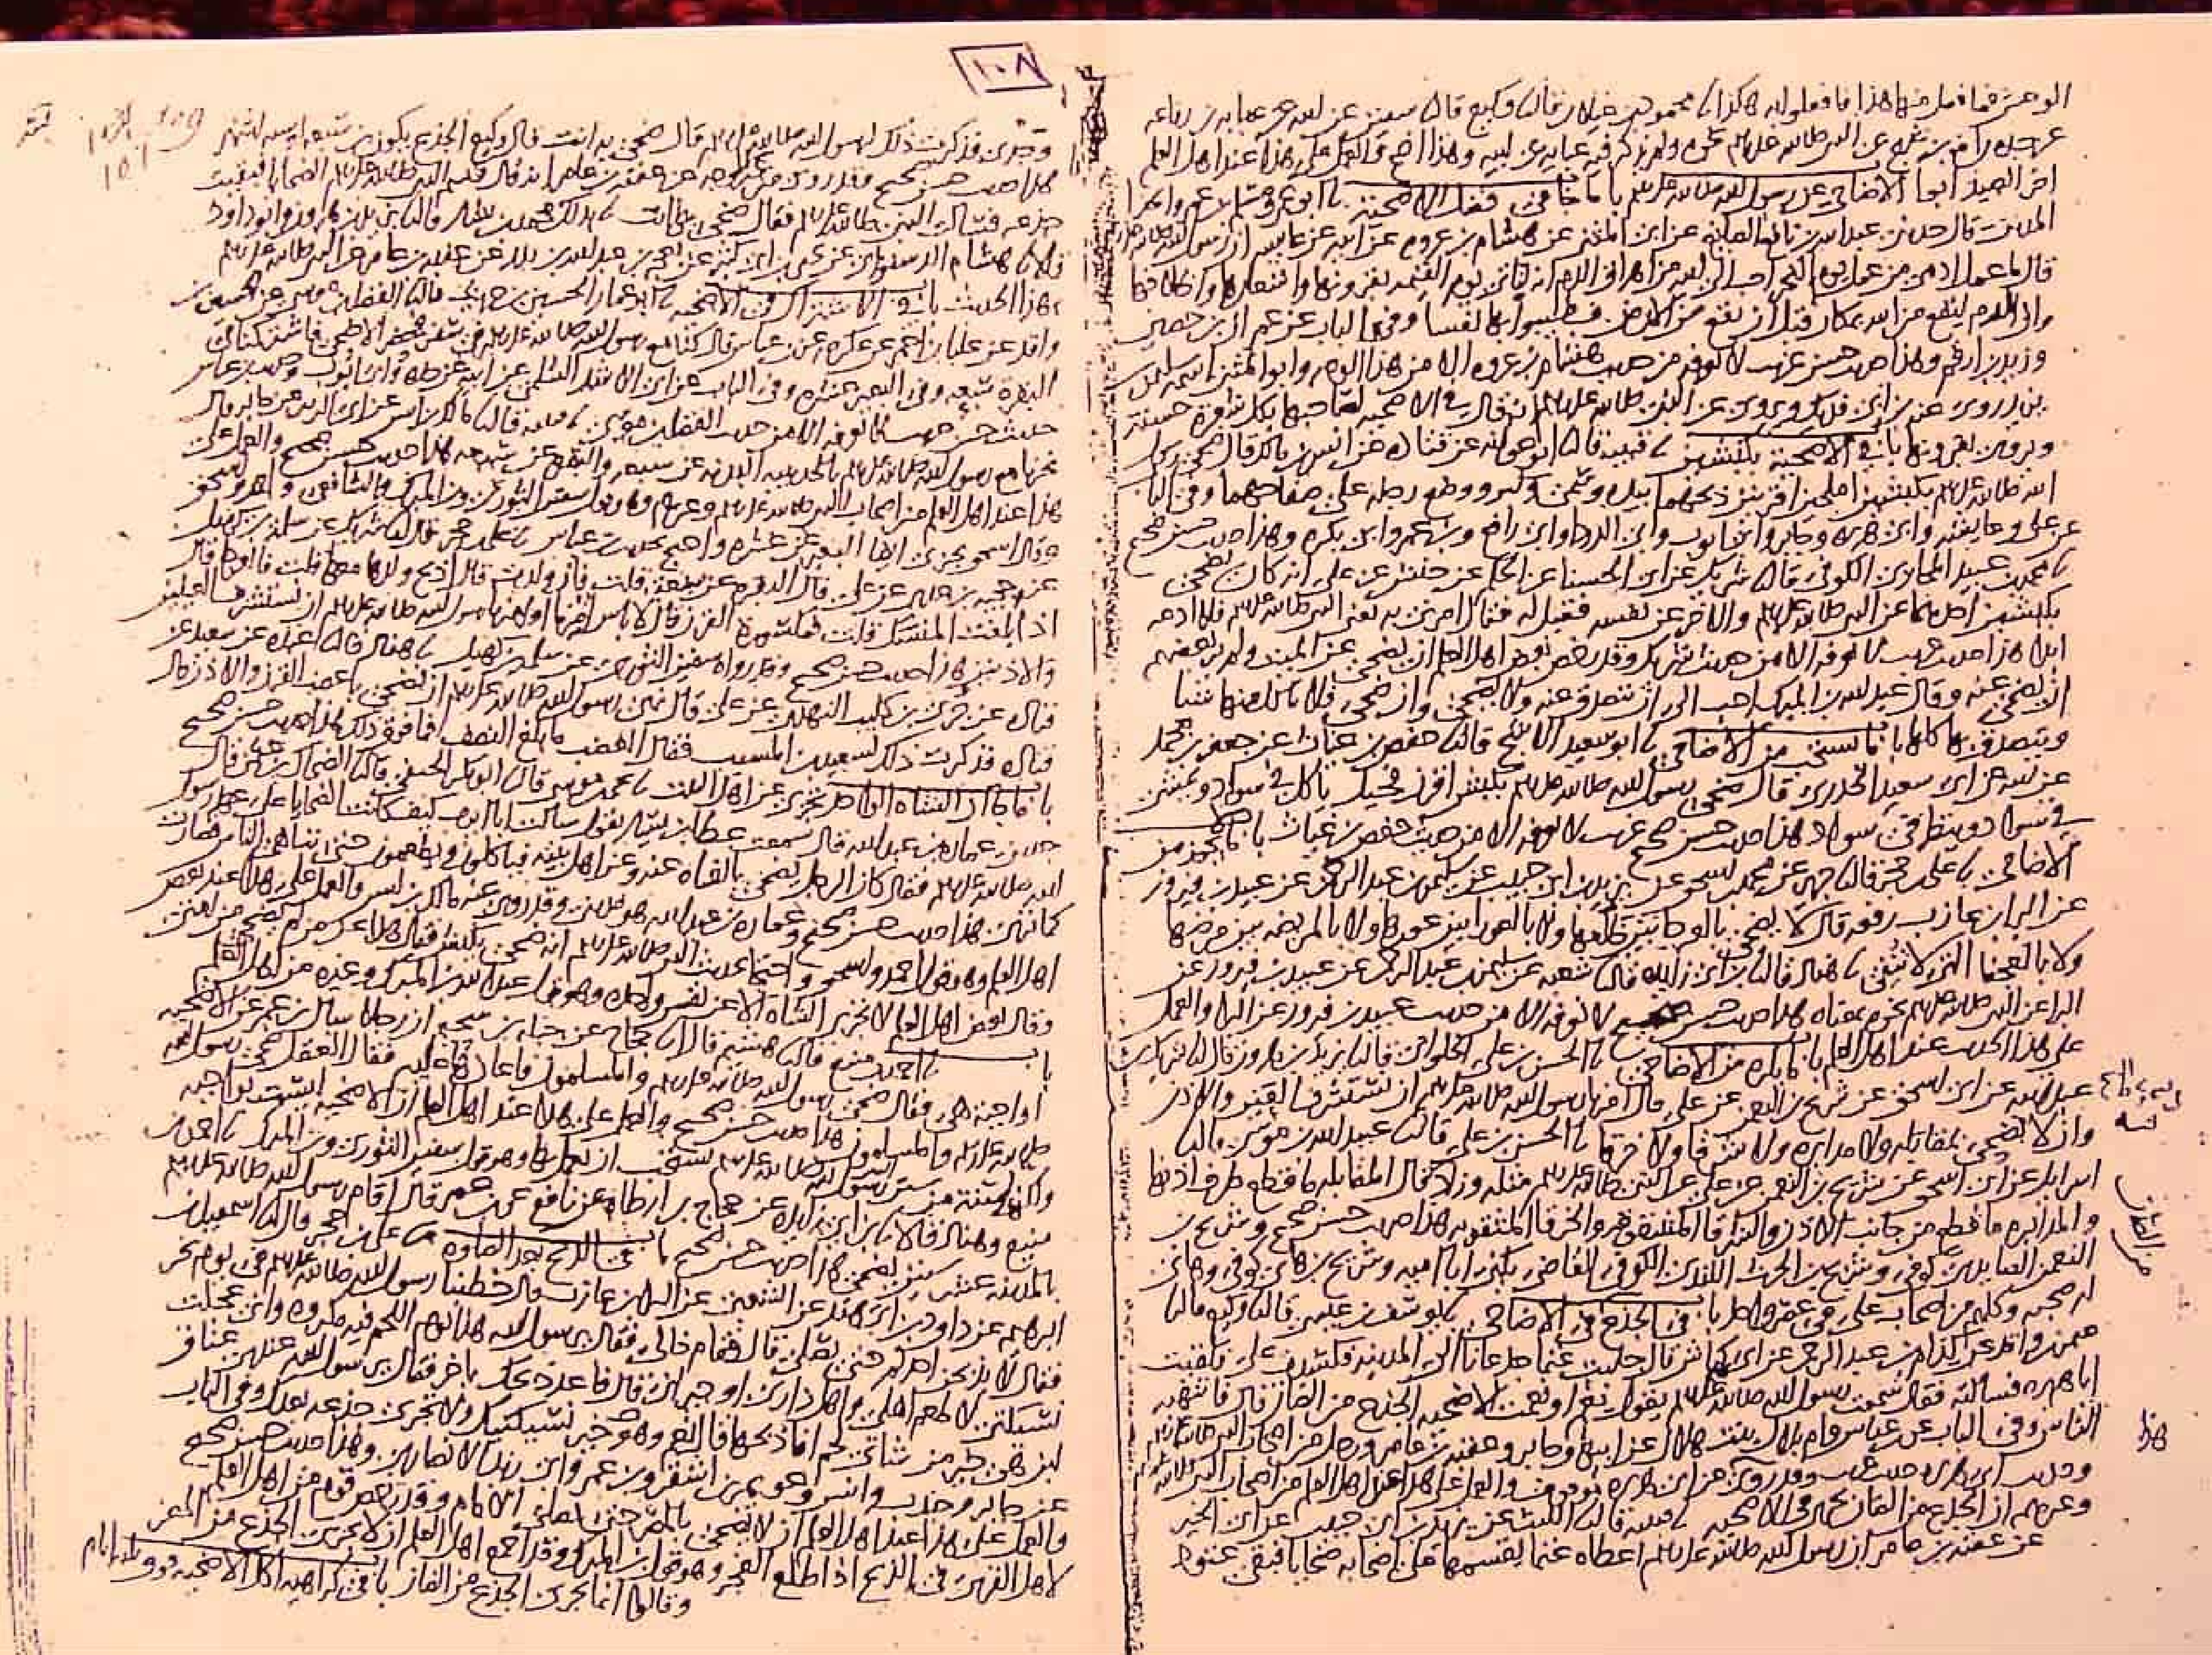 الوحش فما فعل منها هذا فافعلوا به هكذا نا محمود بن غيلان قال نا وكيع قال نا سفين عن ابيه عن عبايه بن رفاعه
عن جده رافع بن خديج عن النبي صلى الله عليه وسلم نحوه ولم يذكر فيه عبايه عن ابيه وهذا اصح والعمل على هذا عند اهل العلم
اخر الصيد ابواب الاضاحي عن رسول الله صلى الله عليه وسلم باب ما جا في فضل الاضحية نا ابو عمرو مسلم بن عمرو
المديني قال حدثني عبد الله بن نافع الصايغ عن ابي المثنى عن هشام بن عروه عن ابيه عن عايشه ان رسول الله صلى الله عليه وسلم
قال ما عمل ادمي من عمل يوم النحر احب الى الله من اهراق الدم انه لياتي يوم القيمه بقرونها واشعارها واظلافها
وان الدم ليقع من الله بمكان قبل ان يقع من الارض فطيبوا بها نفسا وفي الباب عن عمران بن حصين
وزيد بن ارقم وهذا حديث حسن غريب لا نعرفه من حديث هشام بن عروه الا من هذا الوجه وابو المثنى اسمه سليمن
بن يزيد روى عنه ابن ابي فديك ويروى عن النبي صلى الله عليه وسلم انه قال في الاضحيه لصاحبها بكل شعره حسنة
ويروى بقرونها باب في الاضحية بكبشين نا قتيبه قال نا ابو عوانه عن قتاده عن انس بن مالك قال ضحى رسول
الله صلى الله عليه وسلم بكبشين املحين اقرنين ذبحهما بيده وسمى وكبر ووضع رجله على صفاحهما وفي الباب
عن علي وعايشه وابي هريره وجابر وابي ايوب وابي الدردا وابي رافع وابن عمر وابي بكره وهذا حديث حسن صحيح
نا محمد بن عبيد المحاربي الكوفي قال نا شريك عن ابي الحسنا عن الحكم عن حنش عن علي انه كان يضحي
بكبشين احدهما عن النبي صلى الله عليه وسلم والاخر عن نفسه فقيل له فقال امرني به يعني النبي صلى الله عليه وسلم فلا ادعه
ابدا هذا حديث غريب لا نعرفه الا من حديث شريك وقد رخص بعض اهل العلم ان يضحى عن الميت ولم ير بعضهم
ان يضحى عنه وقال عبد الله بن المبرك احب الي ان يتصدق عنه ولا يضحى وان ضحى فلا ياكل منها شيا
ويتصدق بها كلها باب ما يستحب من الاضاحي نا ابو سعيد الاشج قال نا حفص بن غياث عن جعفر بن محمد
عن ابيه عن ابي سعيد الخدري قال ضحى رسول الله صلى الله عليه وسلم بكبش اقرن فحيل ياكل في سواد ويمشي
في سواد وينظر في سواد هذا حديث حسن صحيح غريب لا نعرفه الا من حديث حفص بن غياث باب ما لا يجوز من
الاضاحي نا علي بن حجر قال نا جرير عن محمد بن اسحق عن يزيد بن ابي حبيب عن سليمن بن عبد الرحمن عن عبيد بن فيروز
عن البرا بن عازب رفعه قال لا يضحى بالعرجا بين ظلعها ولا بالعورا بين عورها ولا بالمريضه بين مرضها
ولا بالعجفا التي لا تنقي نا هناد قال نا ابن ابي زايده قال نا شعبه عن سليمن بن عبد الرحمن عن عبيد بن فيروز عن
البرا عن النبي صلى الله عليه وسلم نحوه بمعناه هذا حديث حسن صحيح لا نعرفه الا من حديث عبيد بن فيروز عن البرا والعمل
على هذا الحديث عند اهل العلم باب ما يكره من الاضاحي نا الحسن بن علي الحلواني قال نا يزيد بن هارون قال نا شريك بن
عبد الله عن ابي اسحق عن شريح بن النعمن عن علي قال امرنا رسول الله صلى الله عليه وسلم ان نستشرف العين والاذن
وان لا نضحي بمقابله ولا مدابره ولا شرقا ولا خرقا نا الحسن بن علي قال نا عبيد الله بن موسى قال نا
اسرايل عن ابي اسحق عن شريح بن النعمن عن علي عن النبي صلى الله عليه وسلم مثله وزاد قال المقابله ما قطع طرف اذنها
والمدابره ما قطع من جانب الاذن والشرقا المشقوقه والخرقا المثقوبه هذا حديث حسن صحيح وشريح بن
النعمن الصايدي كوفي وشريح بن الحرث الكندي الكوفي القاضي يكنى ابا اميه وشريح بن هاني كوفي وهاني
له صحبه وكلهم من اصحاب علي في عصر واحد باب في الجذع من الضان في الاضاحي نا يوسف بن عيسى قال نا وكيع قال نا
عثمن بن واقد عن كدام بن عبد الرحمن عن ابي كباش قال جلبت غنما جذعانا الى المدينه فكسدت علي فلقيت
ابا هريره فسالته فقال سمعت رسول الله صلى الله عليه وسلم يقول نعم او نعمت الاضحيه الجذع من الضان قال فانتهبه
الناس وفي الباب عن ابن عباس وام بلال بنت هلال عن ابيها وجابر وعقبه بن عامر ورجل من اصحاب النبي صلى الله عليه وسلم
وحديث ابي هريره حديث غريب وقد روي عن ابي هريره موقوف والعمل على هذا عند اهل العلم من اصحاب النبي صلى الله عليه وسلم
وغيرهم ان الجذع من الضان يجزي في الاضحيه نا قتيبه قال نا الليث عن يزيد بن ابي حبيب عن ابي الخير
عن عقبه بن عامر ان رسول الله صلى الله عليه وسلم اعطاه غنما يقسمها في اصحابه ضحايا فبقي عتود
هذا
١٠٨
109
101
فذكرت ذلك لرسول الله صلى الله عليه وسلم قال ضح به انت قال وكيع الجذع يكون ابن سبعه او سته اشهر
هذا حديث حسن صحيح وقد روي من غير هذا الوجه عن عقبه بن عامر انه قال قسم النبي صلى الله عليه وسلم الضحايا فبقيت
جذعه فسالت النبي صلى الله عليه وسلم فقال ضح بها انت نا بذلك محمد بن بشار قال نا يزيد بن هارون وابو داود
قالا نا هشام الدستوائي عن يحيى بن ابي كثير عن بعجه بن عبد الله بن بدر عن عقبه بن عامر عن النبي صلى الله عليه وسلم
بهذا الحديث باب في الاشتراك في الاضحيه نا ابو عمار الحسين بن حريث قال نا الفضل بن موسى عن الحسين بن
واقد عن علبا بن احمر عن عكرمه عن ابن عباس قال كنا مع رسول الله صلى الله عليه وسلم في سفر فحضر الاضحى فاشتركنا في
البقره سبعه وفي البعير عشره وفي الباب عن ابي الاشد السلمي عن ابيه عن جده وابي ايوب وحديث ابن عباس
حديث حسن غريب لا نعرفه الا من حديث الفضل بن موسى نا قتيبه قال نا مالك بن انس عن ابي الزبير عن جابر قال
نحرنا مع رسول الله صلى الله عليه وسلم بالحديبيه البدنه عن سبعه والبقره عن سبعه هذا حديث حسن صحيح والعمل على
هذا عند اهل العلم من اصحاب النبي صلى الله عليه وسلم وغيرهم وهو قول سفين الثوري وابن المبرك والشافعي واحمد واسحق
وقال اسحق يجزي ايضا البعير عن عشره واحتج بحديث ابن عباس نا علي بن حجر قال نا شريك عن سلمه بن كهيل
عن حجيه بن عدي عن علي قال البقره عن سبعه قلت فان ولدت قال اذبح ولدها معها قلت فالعرجا قال
اذا بلغت المنسك قلت فمكسورة القرن قال لا باس امرنا او امرنا رسول الله صلى الله عليه وسلم ان نستشرف العينين
والاذنين هذا حديث حسن صحيح وقد رواه سفين الثوري عن سلمه بن كهيل نا هناد قال نا عبده عن سعيد عن
قتاده عن جري بن كليب النهدي عن علي قال نهى رسول الله صلى الله عليه وسلم ان يضحى باعضب القرن والاذن قال
قتاده فذكرت ذلك لسعيد بن المسيب فقال العضب ما بلغ النصف فما فوق ذلك هذا حديث حسن صحيح
باب ما جا ان الشاه الواحده تجزي عن اهل البيت نا يحيى بن موسى قال نا ابو بكر الحنفي قال نا الضحاك بن عثمن قال
حدثني عماره بن عبد الله قال سمعت عطا بن يسار يقول سالت ابا ايوب كيف كانت الضحايا على عهد رسول
الله صلى الله عليه وسلم فقال كان الرجل يضحي بالشاه عنه وعن اهل بيته فياكلون ويطعمون حتى تباهى الناس فصارت
كما ترى هذا حديث حسن صحيح وعماره بن عبد الله هو مديني وقد روى عنه مالك بن انس والعمل على هذا عند بعض
اهل العلم وهو قول احمد واسحق واحتجا بحديث النبي صلى الله عليه وسلم انه ضحى بكبش فقال هذا عمن لم يضح من امتي
وقال بعض اهل العلم لا تجزي الشاه الا عن نفس واحده وهو قول عبد الله بن المبرك وغيره من اهل العلم
باب نا احمد بن منيع قال نا هشيم قال نا حجاج عن جبله بن سحيم ان رجلا سال ابن عمر عن الاضحيه
اواجبة هي فقال ضحى رسول الله صلى الله عليه وسلم والمسلمون فاعادها عليه فقال اتعقل ضحى رسول الله
صلى الله عليه وسلم والمسلمون هذا حديث حسن صحيح والعمل على هذا عند اهل العلم ان الاضحيه ليست بواجبه
ولكنها سنة من سنن رسول الله صلى الله عليه وسلم يستحب ان يعمل بها وهو قول سفين الثوري وابن المبرك نا احمد بن
منيع وهناد قالا نا ابن ابي زايده عن حجاج بن ارطاه عن نافع عن ابن عمر قال اقام رسول الله صلى الله عليه وسلم
بالمدينه عشر سنين يضحي هذا حديث حسن صحيح باب في الذبح بعد الصلوه نا علي بن حجر قال نا اسمعيل بن
ابرهيم عن داود بن ابي هند عن الشعبي عن البرا بن عازب قال خطبنا رسول الله صلى الله عليه وسلم في يوم نحر
فقال لا يذبحن احدكم حتى يصلي قال فقام خالي فقال يرسول الله هذا يوم اللحم فيه مكروه واني عجلت
نسيكتي لاطعم اهلي واهل داري او جيراني قال فاعد ذبحك باخر فقال يرسول الله عندي عناق
لبن هي خير من شاتي لحم افاذبحها قال نعم وهو خير نسيكتيك ولا تجزي جذعه بعدك وفي الباب
عن جابر وجندب وانس وعويمر بن اشقر وابن عمر وابي زيد الانصاري وهذا حديث حسن صحيح
والعمل على هذا عند اهل العلم ان لا يضحى بالمصر حتى يصلي الامام وقد رخص قوم من اهل العلم
لاهل القرى في الذبح اذا طلع الفجر وهو قول ابن المبرك وقد اجمع اهل العلم ان لا يجزي الجذع من المعز
وقالوا انما يجزي الجذع من الضان باب في كراهيه اكل الاضحيه فوق ثلثه ايام